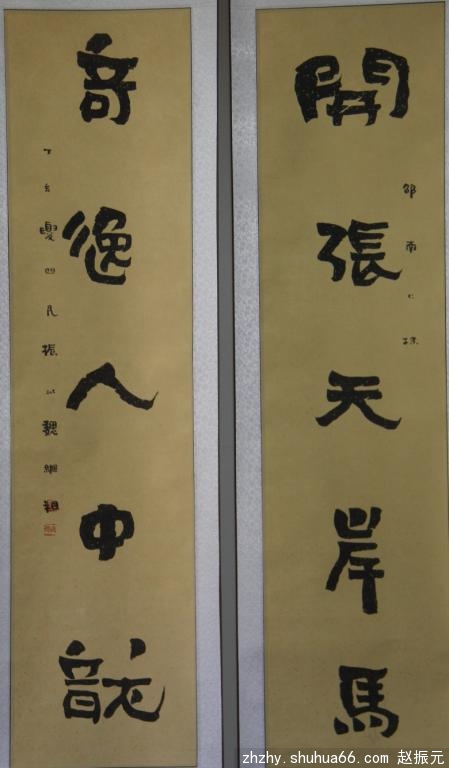 開張天岸馬
奇逸人中龍
丁亥夏四月振
zhzhy.shuhua66.com 赵振元